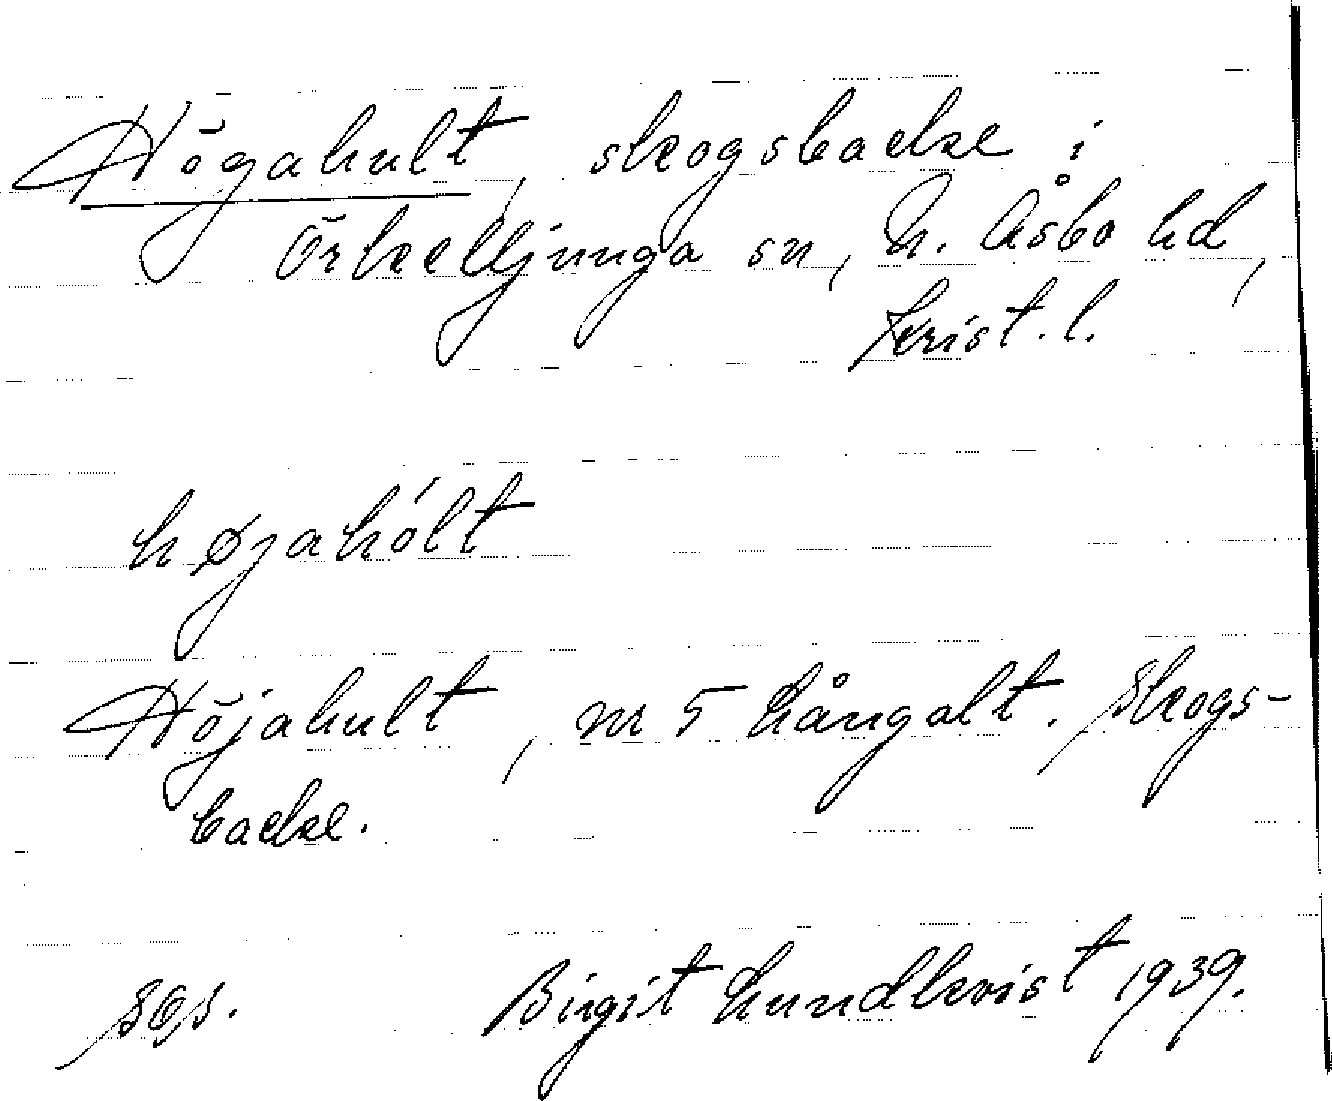 Högahult, skogsbacke i
Örkelljunga sn, N. Åsbo hd,
Krist. l.
højahólt
Höjahult, nr 5 Långalt. Skogs-
backe.
Sgs. Birgit Lundkvist 1939.